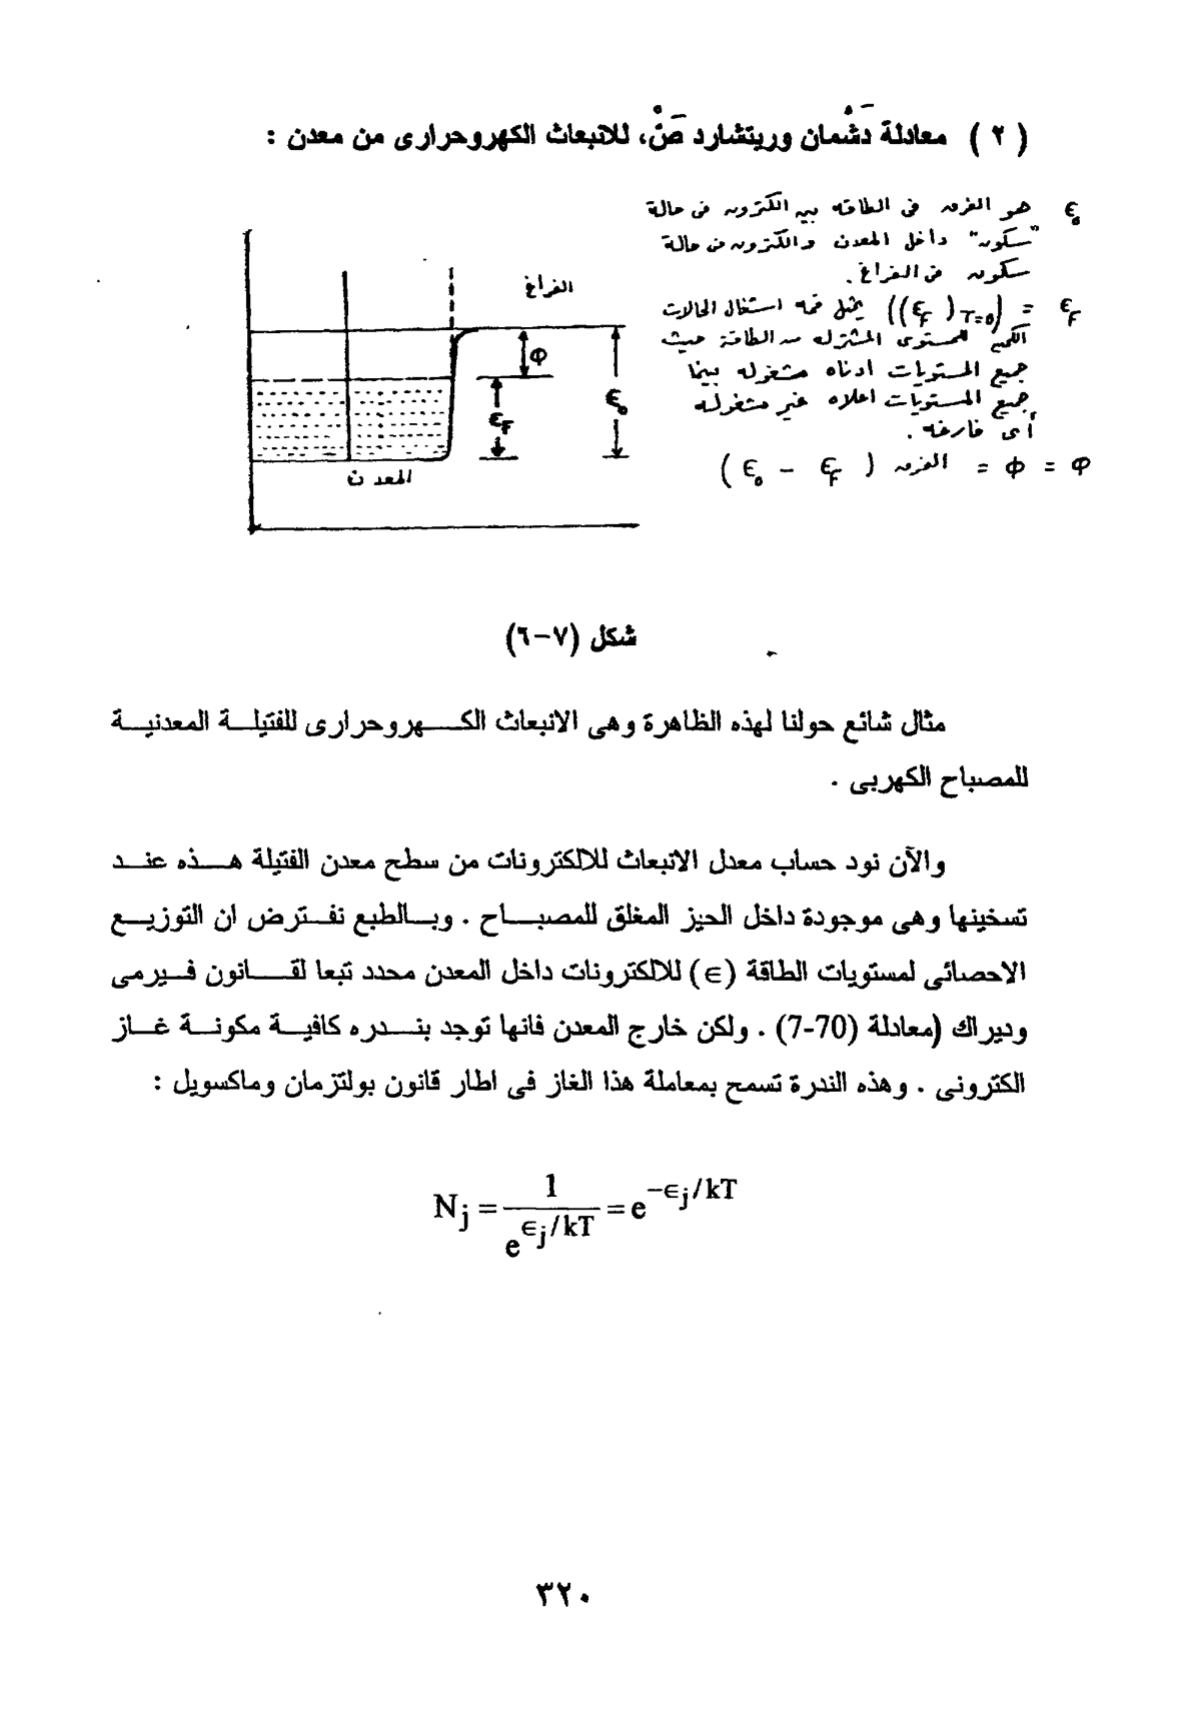 ( ٢ ) معادلة دَشْمان وريتشارد صَنْ، للانبعاث الكهروحرارى من معدن :
ε₀ هو الفرق فى الطاقه بين الكترون فى حالة
"سكون" داخل المعدن والكترون فى حالة
سكون فى الفراغ .
ε_F = (ε_F)_{T=0} يمثل قمة استغال الحالات
المستوى من الطاقة حيث
جميع المستويات ادناه مشغوله بينما
جميع المستويات اعلاه غير مشغوله
أى فارغه .
Φ = ϕ = الفرق ( ε₀ − ε_F )
الفراغ
Φ
ε₀
ε_F
المعدن
شكل (٧-٦)
مثال شائع حولنا لهذه الظاهرة وهى الانبعاث الكهروحرارى للفتيلة المعدنية
للمصباح الكهربى .
والآن نود حساب معدل الانبعاث للالكترونات من سطح معدن الفتيلة هذه عند
تسخينها وهى موجودة داخل الحيز المغلق للمصباح . وبالطبع نفترض ان التوزيع
الاحصائى لمستويات الطاقة (∊) للالكترونات داخل المعدن محدد تبعا لقانون فيرمى
وديراك (معادلة (7-70) . ولكن خارج المعدن فانها توجد بندره كافية مكونة غاز
الكترونى . وهذه الندرة تسمح بمعاملة هذا الغاز فى اطار قانون بولتزمان وماكسويل :
N_j = 1 / e^{∊_j/kT} = e^{−∊_j/kT}
٣٢٠